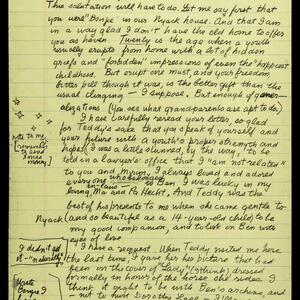 This salutation will have to do. Let me say first that
you were "Benjie" in our Nyack house. And that I am
in a way glad I don't have the old home to offer
you as haven. Twenty is the age when a youth
usually erupts from home with a lot of hidden
griefs and "forbidden" impressions of even the "happiest
childhood. But erupt one must, and your freedom,
bitter pill though it was, is the better gift than the
usual clinging — I suppose. But enough of
(You see what grandparents are apt to do.)
I have carefully reread your letter so glad
for Teddy's sake that you speak of yourself and
your future with a youth's proper strength and
hopes. I was a little stunned, by the way, to be
told in a lawyer's office that I "am not related"
to you and I always loved and adored
everyone who belonged to Ben. I was lucky in my
in-law
loving Ma and Pa Hecht, And Teddy was the
best of his presents to me when she came gentle to
Nyack (and so beautiful as a 14-year-old child) to be
my good companion, and to look on Ben with
eyes of love.
I have a request. When Teddy visited me here
the last time, I gave her his picture that had
been on the cover of (I think) dressed
formally in honor of the horse and
think it ought to be with Ben's archives, and
not to
I didn't get
it "naturally"
Write